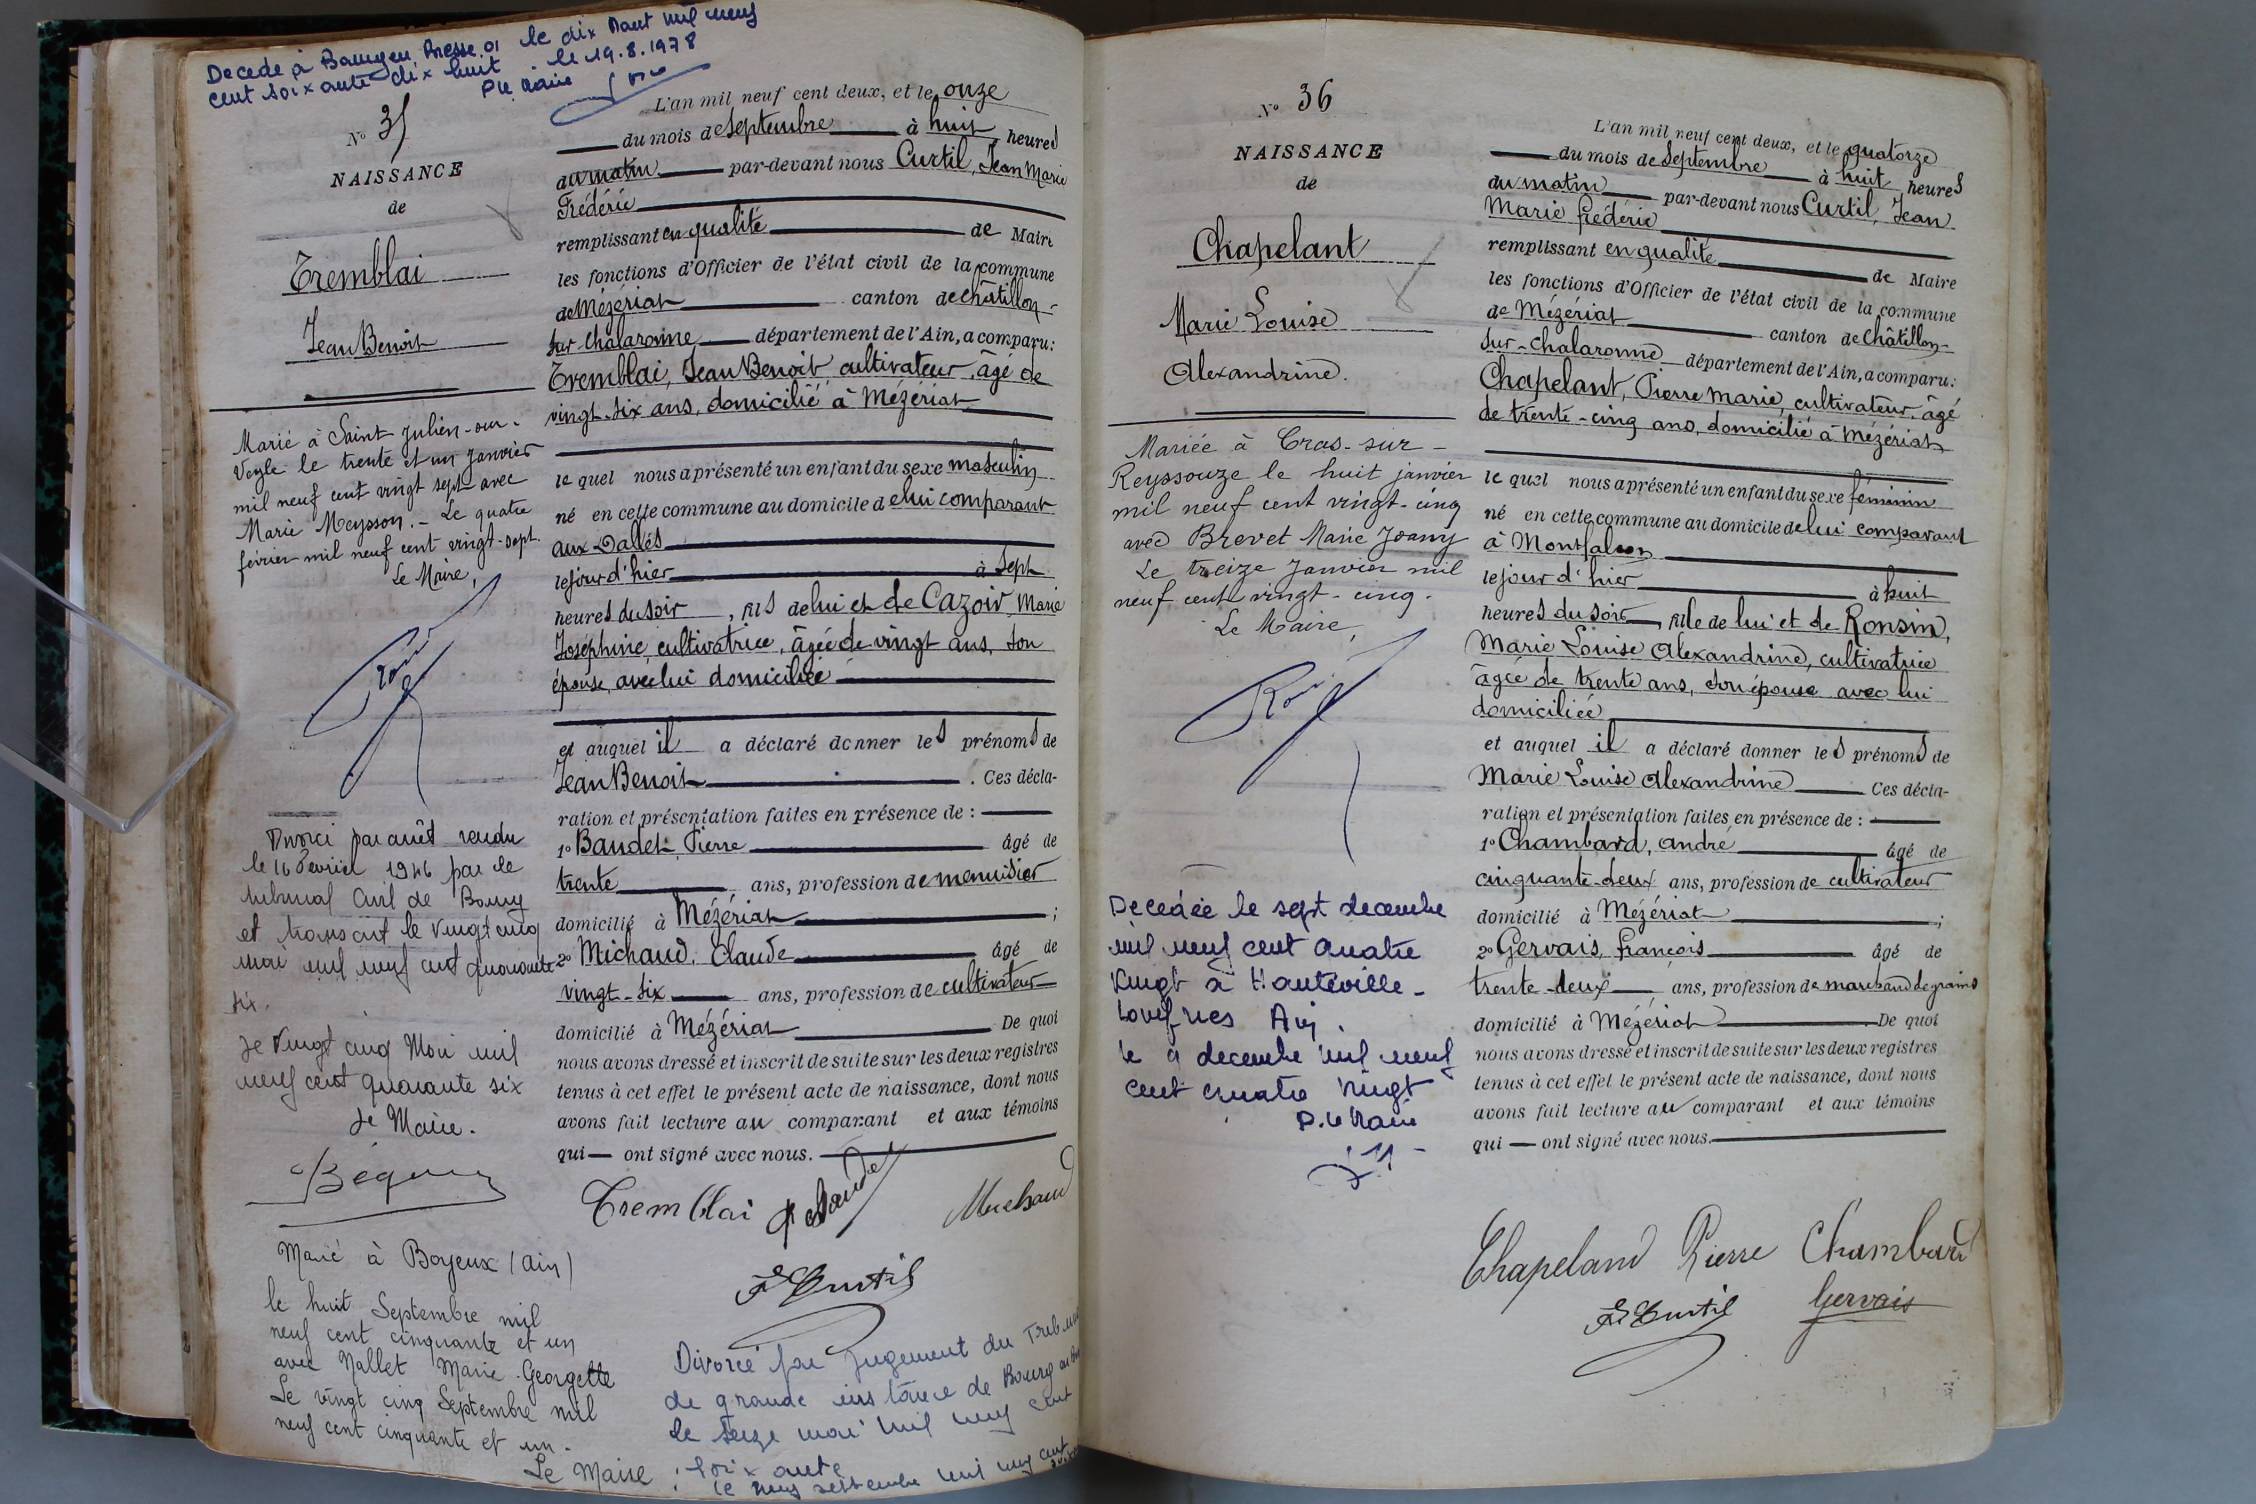 Décédé à Bourg en Bresse 01 le dix Aout mil neuf
cent soixante dix huit. le 19.8.1978
P le Maire
N° 35
NAISSANCE
de
Tremblai
Jean Benoit
Marié à Saint Julien-sur-
Veyle le trente et un janvier
mil neuf cent vingt sept avec
Marie Meysson. - Le quatre
février mil neuf cent vingt-sept.
Le Maire,
Divorcé par arrêt rendu
le 16 Février 1946 par le
tribunal Civil de Bourg
et transcrit le vingt cinq
mai mil neuf cent quarante
six.
Le Vingt cinq Mai mil
neuf cent quarante six
Le Maire.
Marié à Boyeux (Ain)
le huit Septembre mil
neuf cent cinquante et un
avec Nallet Marie-Georgette
Le vingt cinq Septembre mil
neuf cent cinquante et un.
Le Maire
L'an mil neuf cent deux, et le onze
du mois de Septembre à huit heures
du matin par-devant nous Curtil, Jean Marie
Frédéric
remplissant en qualité de Maire
les fonctions d'Officier de l'état civil de la commune
de Mézériat canton de Châtillon-
sur-Chalaronne département de l'Ain, a comparu:
Tremblai, Jean Benoit cultivateur, âgé de
vingt-six ans, domicilié à Mézériat
le quel nous a présenté un enfant du sexe masculin
né en cette commune au domicile de lui comparant
aux Dallés
le jour d'hier à Sept
heures du soir, fils de lui et de Cazoir, Marie
Joséphine, cultivatrice, âgée de vingt ans, son
épouse, avec lui domiciliée
et auquel il a déclaré donner les prénoms de
Jean Benoit. Ces décla-
ration et présentation faites en présence de :
1° Baudet, Pierre âgé de
trente ans, profession de menuisier
domicilié à Mézériat ;
2° Michaud, Claude âgé de
vingt-six ans, profession de cultivateur
domicilié à Mézériat De quoi
nous avons dressé et inscrit de suite sur les deux registres
tenus à cet effet le présent acte de naissance, dont nous
avons fait lecture au comparant et aux témoins
qui — ont signé avec nous.
Tremblai P Baudet Michaud
F Curtil
Divorcé par jugement du Tribunal
de grande instance de Bourg en
le seize mai mil neuf cent
soixante
le neuf septembre mil neuf cent
N° 36
NAISSANCE
de
Chapelant
Marie Louise
Alexandrine.
Mariée à Cras-sur-
Reyssouze le huit janvier
mil neuf cent vingt-cinq
avec Brevet Marie Joany
Le treize Janvier mil
neuf cent vingt-cinq.
Le Maire,
Decedée le sept decembre
mil neuf cent quatre
vingt à Hauteville-
Lompnes Ain.
le 9 decembre mil neuf
cent quatre vingt
P. le Maire
L'an mil neuf cent deux, et le quatorze
du mois de Septembre à huit heures
du matin par-devant nous Curtil, Jean
Marie Frédéric
remplissant en qualité de Maire
les fonctions d'Officier de l'état civil de la commune
de Mézériat canton de Châtillon-
sur-Chalaronne département de l'Ain, a comparu:
Chapelant, Pierre Marie, cultivateur, âgé
de trente-cinq ans, domicilié à Mézériat
le quel nous a présenté un enfant du sexe féminin
né en cette commune au domicile de lui comparant
à Montfalcon
le jour d'hier à huit
heures du soir, fille de lui et de Ronsin,
Marie Louise Alexandrine, cultivatrice
âgée de trente ans, son épouse avec lui
domiciliée
et auquel il a déclaré donner les prénoms de
Marie Louise Alexandrine Ces décla-
ration et présentation faites en présence de :
1° Chambard, André âgé de
cinquante-deux ans, profession de cultivateur
domicilié à Mézériat ;
2° Gervais, François âgé de
trente-deux ans, profession de marchand de grains
domicilié à Mézériat De quoi
nous avons dressé et inscrit de suite sur les deux registres
tenus à cet effet le présent acte de naissance, dont nous
avons fait lecture au comparant et aux témoins
qui — ont signé avec nous.
Chapeland Pierre Chambard
F Curtil Gervais